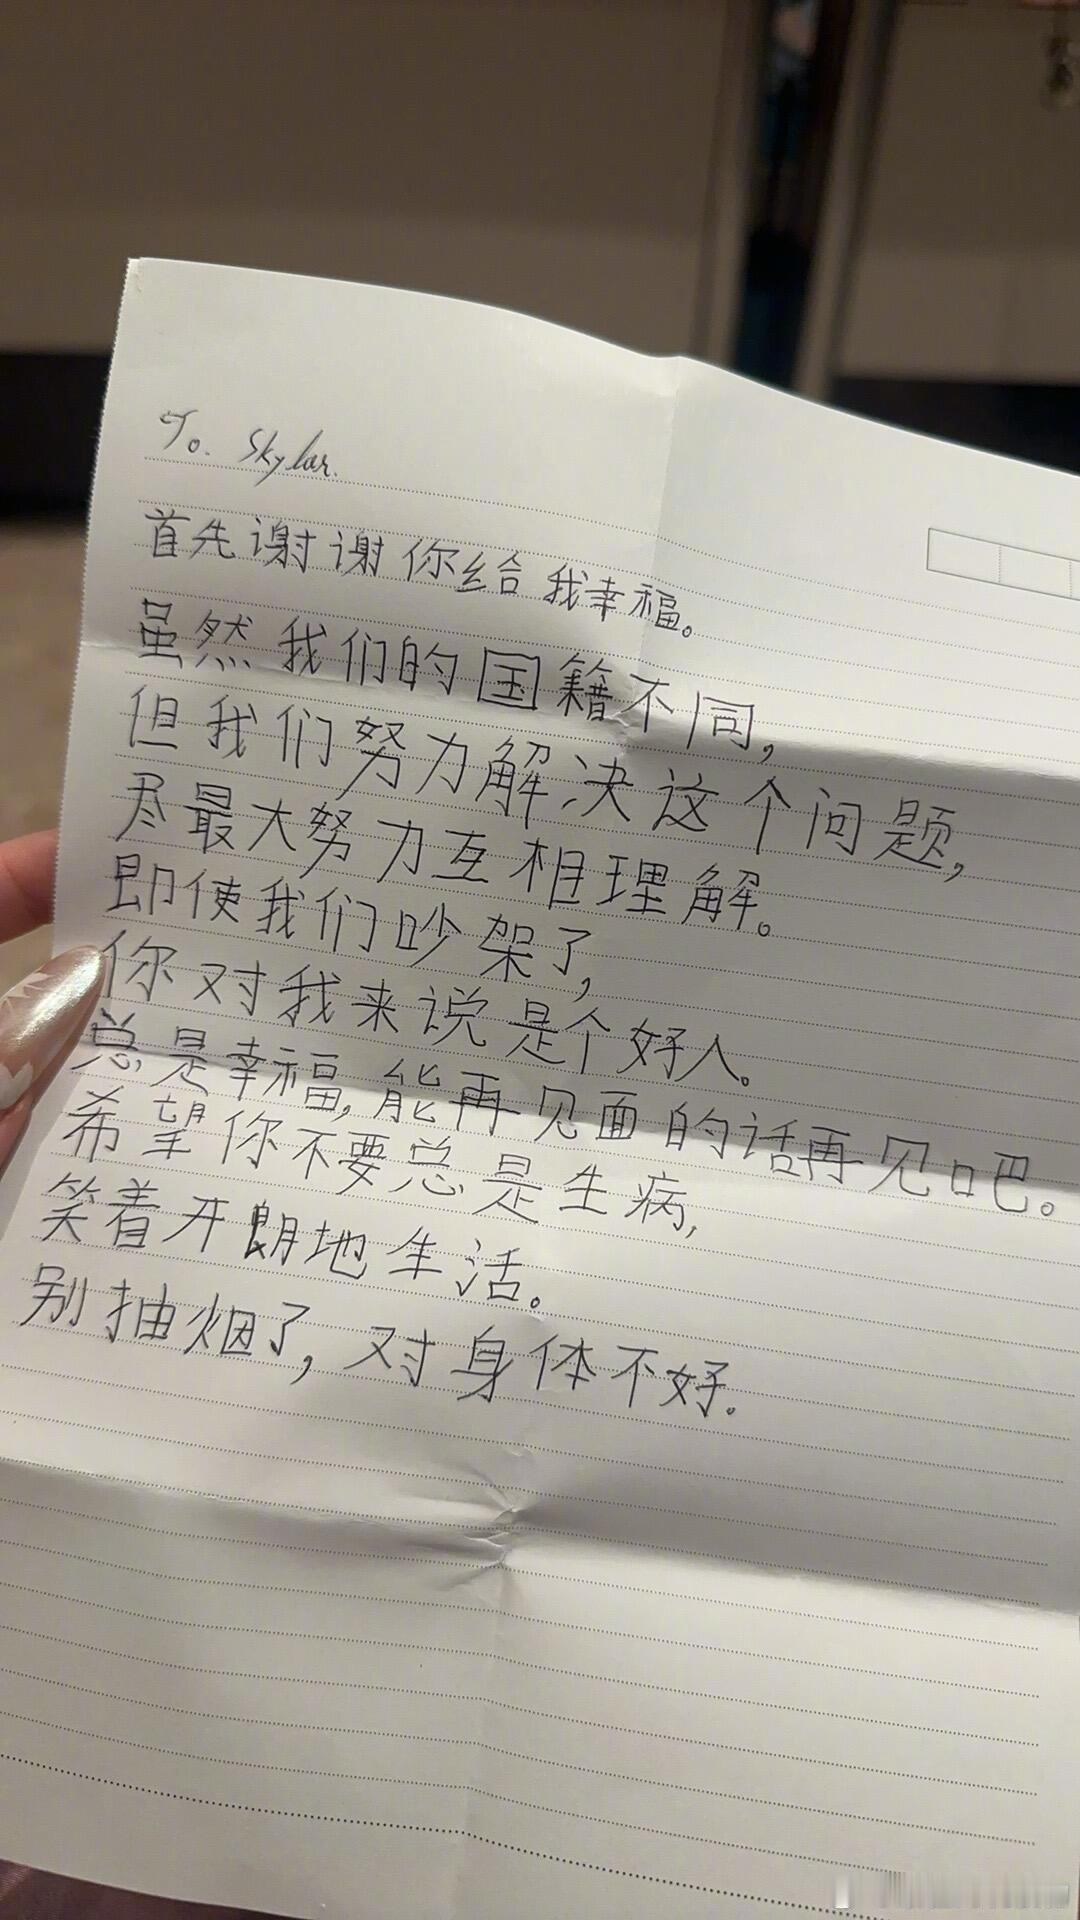 To. Skylar.
首先谢谢你给我幸福。
虽然我们的国籍不同,
但我们努力解决这个问题,
尽最大努力互相理解。
即使我们吵架了,
你对我来说是个好人。
总是幸福,能再见面的话再见吧。
希望你不要总是生病,
笑着开朗地生活。
别抽烟了,对身体不好.